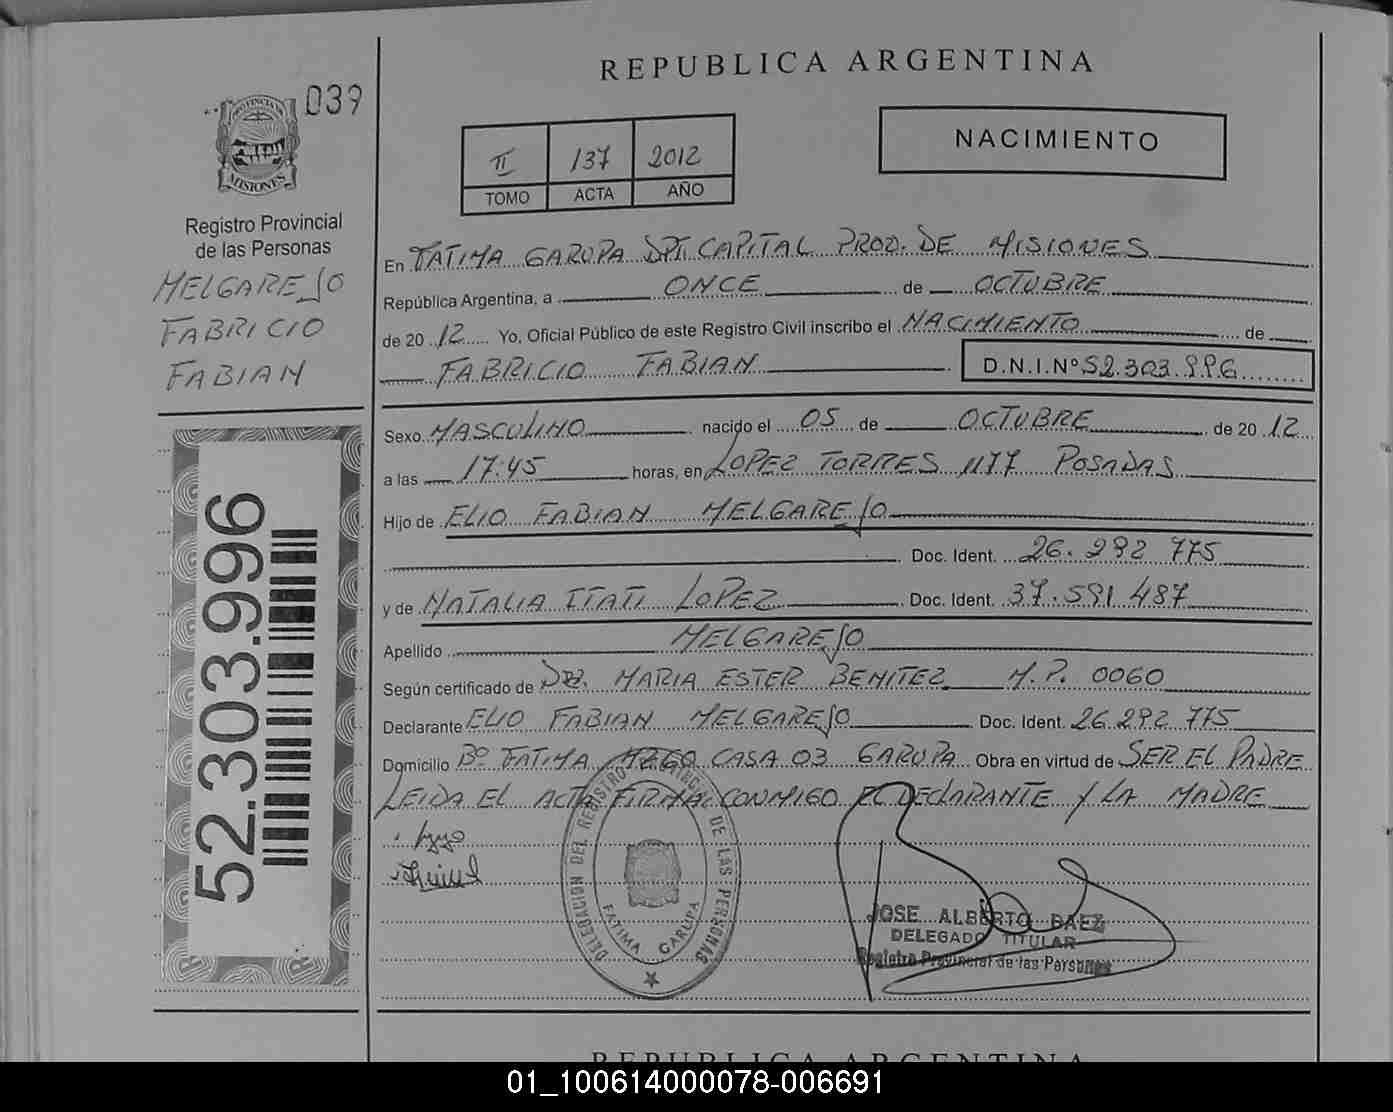 REPUBLICA ARGENTINA
039
PROVINCIA DE
MISIONES
Registro Provincial
de las Personas
MELGAREJO
FABRICIO
FABIAN
52.303.996
II 137 2012
TOMO ACTA AÑO
NACIMIENTO
En FATIMA GARUPA DPT. CAPITAL PROV. DE MISIONES
República Argentina, a ONCE de OCTUBRE
de 2012 Yo, Oficial Público de este Registro Civil inscribo el NACIMIENTO de
FABRICIO FABIAN D.N.I.Nº 52.303.996
Sexo MASCULINO nacido el 05 de OCTUBRE de 2012
a las 17:45 horas, en LOPEZ TORRES 1177 POSADAS
Hijo de ELIO FABIAN MELGAREJO
Doc. Ident. 26.292 775
y de NATALIA ITATI LOPEZ Doc. Ident. 37.591 487
Apellido MELGAREJO
Según certificado de DRA. MARIA ESTER BENITEZ M.P. 0060
Declarante ELIO FABIAN MELGAREJO Doc. Ident. 26.292 775
Domicilio Bº FATIMA MZ60 CASA 03 GARUPA Obra en virtud de SER EL PADRE
LEIDA EL ACTA FIRMA CONMIGO EL DECLARANTE Y LA MADRE
DELEGACION DEL REGISTRO PROVINCIAL DE LAS PERSONAS
FATIMA GARUPA
JOSE ALBERTO BAEZ
DELEGADO TITULAR
Registro Provincial de las Personas
REPUBLICA ARGENTINA
01_100614000078-006691